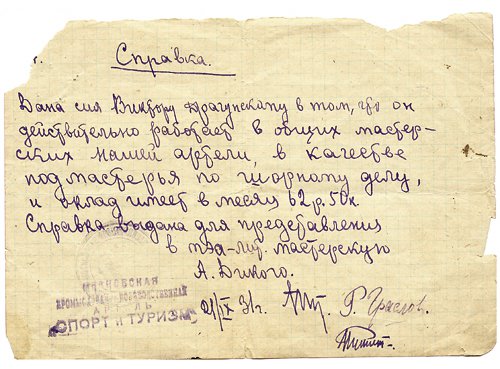 Справка.
Дана сия Виктору Драгунскому в том, что он
действительно работает в общих мастер-
ских нашей артели, в качестве
подмастерья по шорному делу,
и оклад имеет в месяц 62 р. 50 к.
Справка выдана для представления
в теа-лит. мастерскую
А. Дикого.
АРТЕЛЬ
„СПОРТ и ТУРИЗМ"
21/IX 31г.